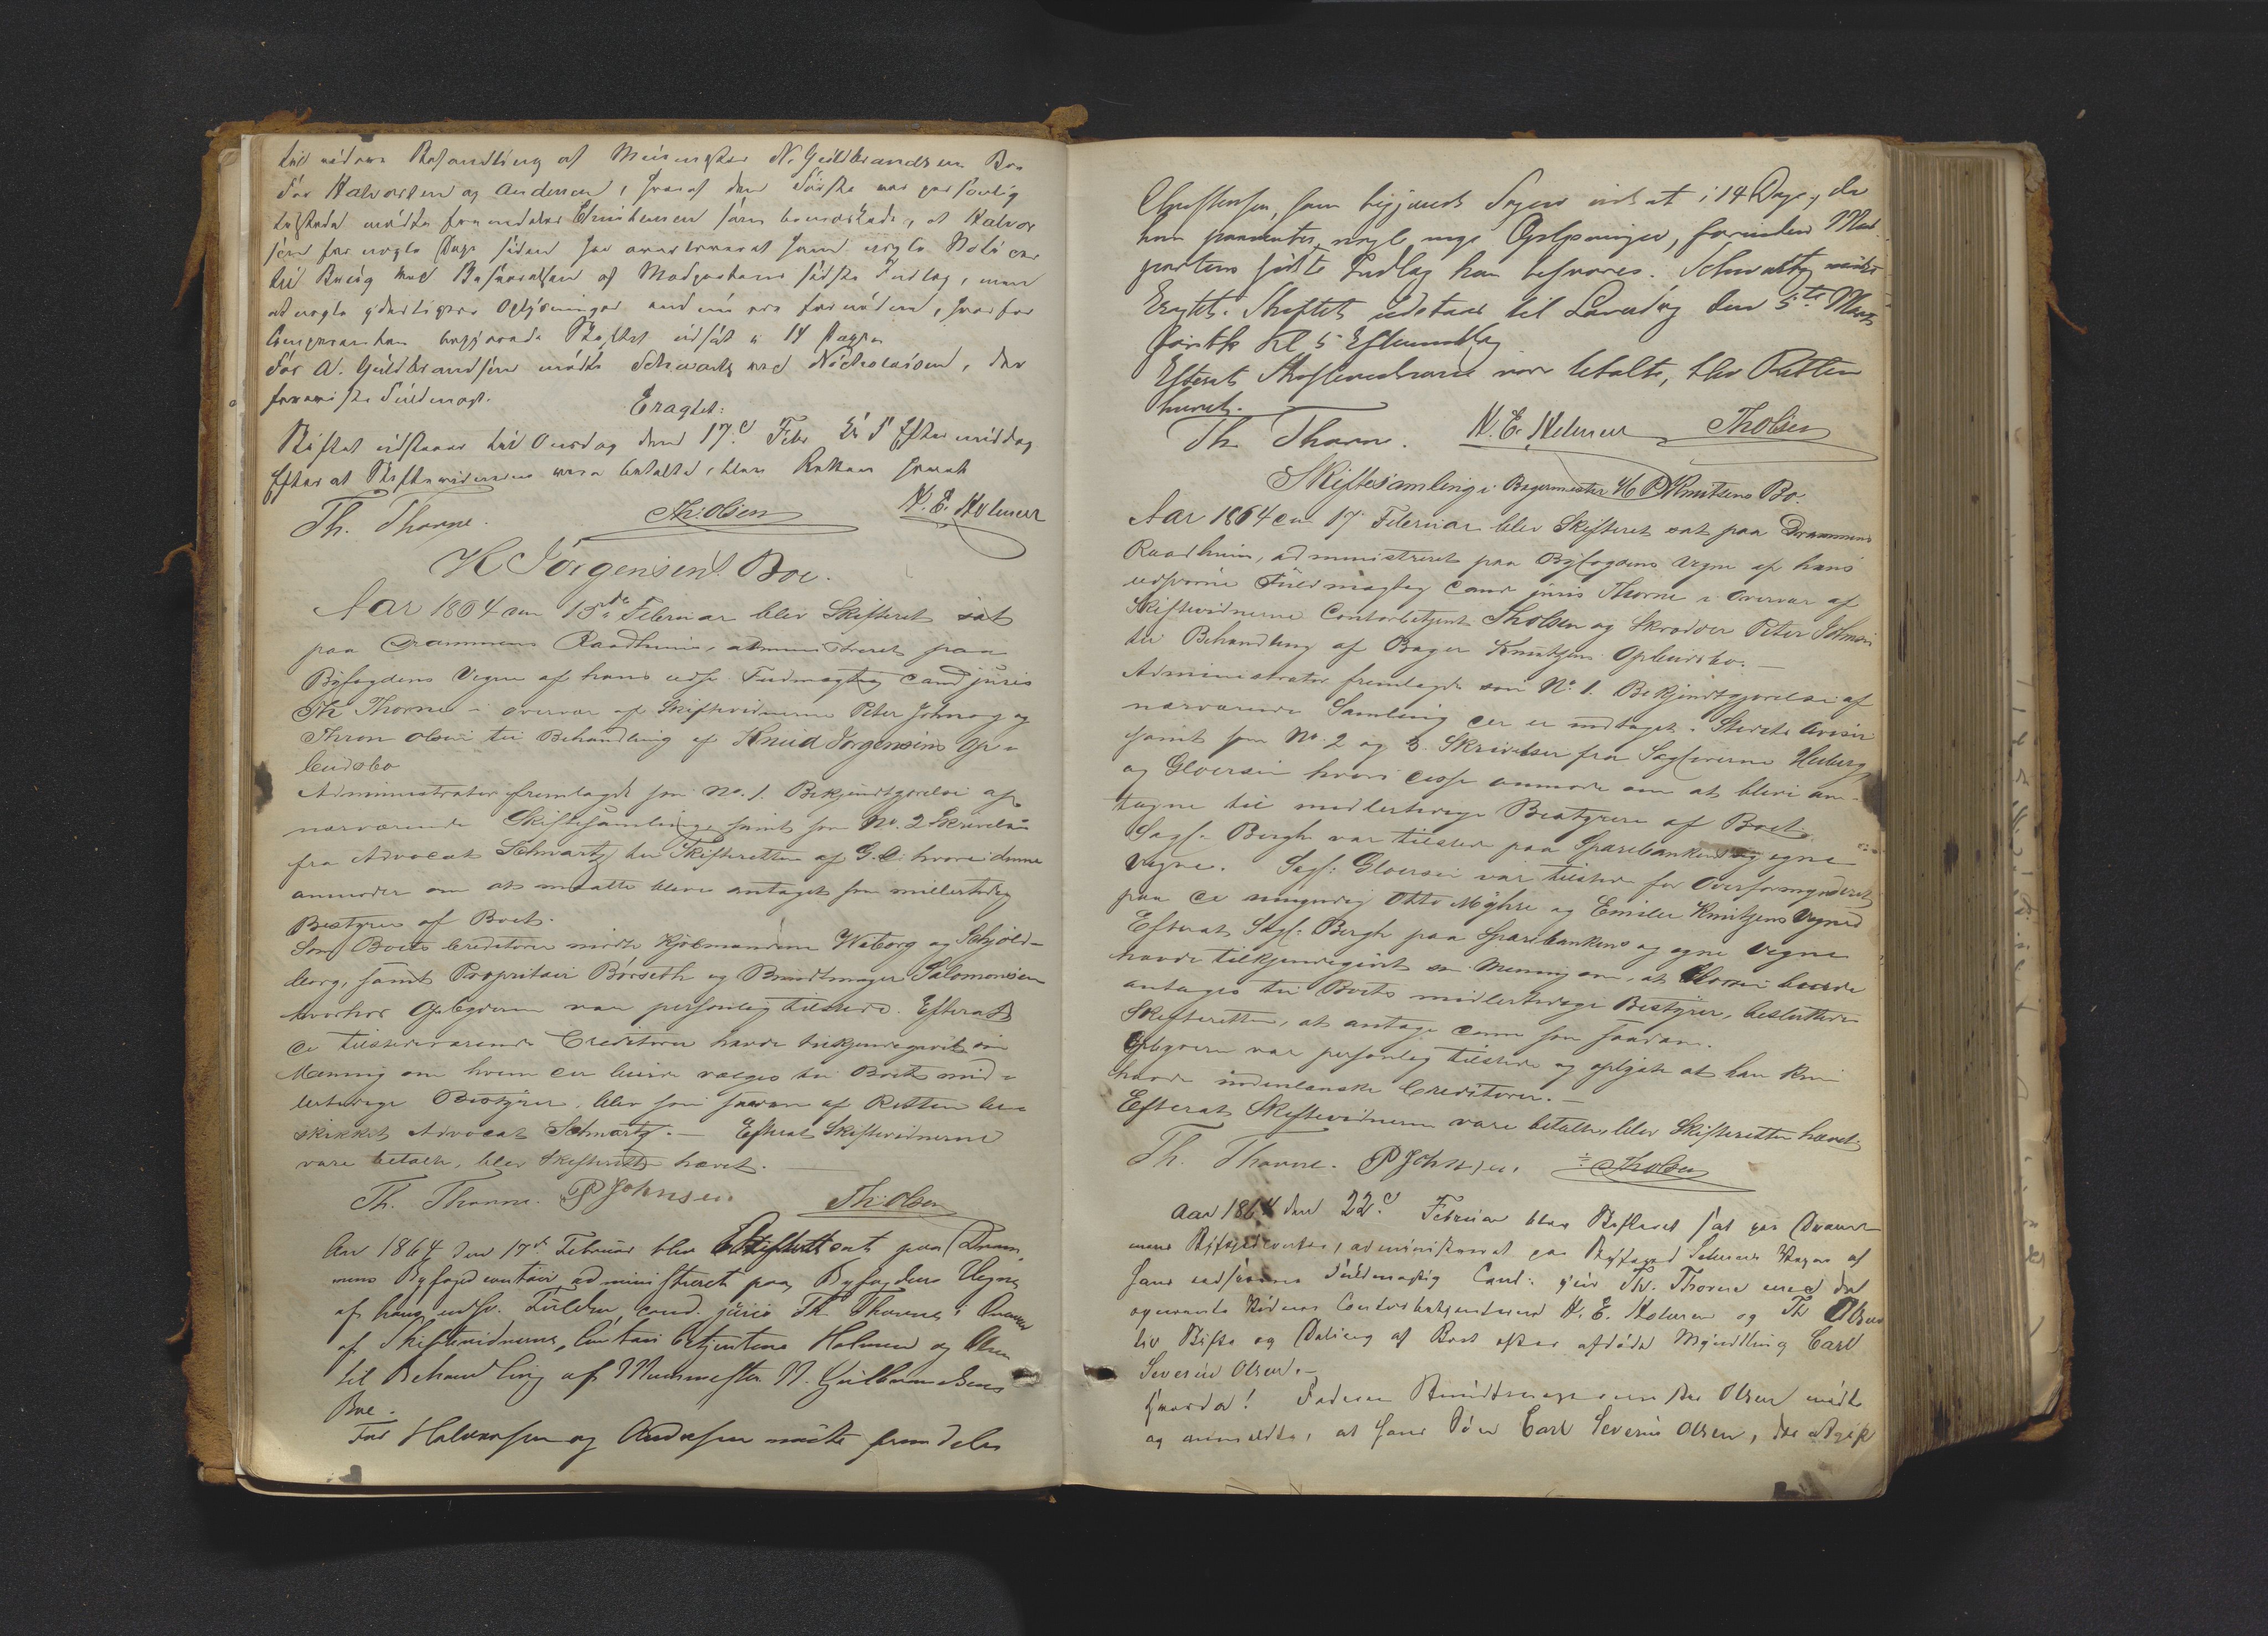 til videre Behandling af Muurmester N. Guldbrandsens Bo
For Halvorsen og Andersen, hvoraf den Første var personlig
tilstede mødte fremdeles Christensen som bemærkede, at Halvor
sen for nogle Dage siden har overleveret ham nogle Noticer
til Brug ved Besvarelsen af Modpartens sidste Indlæg, men
at nogle yderligere Oplysninger endnu ere fornødne, hvorfor
Comparenten begjærede Skiftet udsat i 14 Dage.
For A. Guldbrandsen mødte Schwartz ved Nicholaisen, der
Eragtet:
Skiftet udstaaer til Onsdag den 17.d Febr Kl 5 Eftermiddag
Efter at Skiftevidnerne vare betalte, blev Retten hævet
Th. Thorne. Th: Olsen N. E. Holmen
K Jörgensens Boe.
Aar 1864 den 15.de Februar blev Skifteret sat
paa Drammens Raadhuus, administreret paa
Byfogdens Vegne af hans edsv. Fuldmægtig Cand juris
Th Thorne i overvær af Skiftevidnerne Peter Johnsen og
Thron Olsen til Behandling af Knud Jörgensens Op-
budsbo
Administrator fremlagde som No. 1. Bekjendtgjörelse af
nærværende Skiftesamling samt som No. 2 Skrivelse
fra Advocat Schwartz til Skifteretten af G. D. hvori denne
anmoder om at maatte blive antaget som midlertidig
Bestyrer af Boet.
Som Boets Creditorer mödte Kjöbmændene Wiborg og Schjöld-
borg, samt Proprietair Börseth og Bundtmager Salomonsen
hvorhos Opbyderen var personlig tilstede. Efterat
de tilstedeværende Creditorer havde tilkjendegivet sin
Mening om hvem der burde vælges til Boets mid-
lertidige Bestyrer, blev som saadan af Retten be-
skikket Advocat Schwartz. — Efterat Skiftevidnerne
vare betalte, blev Skifteretten hævet.
Th. Thorne. P Johnsen Th: Olsen
Aar 1864 den 17d Februar blev Skifterett sat paa Dram
mens Byfogedcontoir administreret paa Byfogdens Vegne
af hans edsv. Fuldm. cand. juris Th. Thorne, i Overvær
af Skiftevidnerne, Contoirbetjentene Holmen og Olsen
til Behandling af Muurmester N. Guldbrandsens
Boe.
For Halvorsen og Andersen mödte fremdeles
Christensen, som begjærede Sagen udsat i 14 Dage, da
han nye Oplysninger, forinden Mod
partens sidste Indlæg kan besvares. Schwartz mödte
Eragtet: Skiftet udstaar til Løverdag den 5te Marts
førstk Kl 5 Eftermiddag
Efterat Skiftevidnerne vare betalte, blev Retten
hævet.
Th. Thorne. N. E. Holmen Th Olsen
Skiftesamling i Bagermester H. P. Knutzens Bo.
Aar 1864 den 17 Februar blev Skifteret sat paa Drammens
Raadhuus, administreret paa Byfogdens Vegne af hans
edsvorne Fuldmægtig Cand juris Thorne i Overvær af
Skiftevidnerne Contorbetjent Th Olsen og Skrædder Peter Johnsen
til Behandling af Bager Knutzens Opbudsbo. —
Administrator fremlagde som No. 1. Bekjendtgjörelse af
nærværende Samling der er indtaget i Stedets Aviser
samt som No. 2 og 3. Skrivelser fra Sagförerne Heiberg
og Gloersen hvori disse anmode om at blive an-
tagne til midlertidige Bestyrere af Boet.
Sagf. Bergh var tilstede paa Sparebankens og egne
Vegne. Sagf: Gloersen var tilstede for Overformynderiet
paa de umyndig Otto Myhre og Emilie Knutzens Vegne
Efterat Sagf. Bergh paa Sparebankens og egne Vegne
havde tilkjendegivet sin Mening om, at Gloersen burde
antages til Boets midlertidige Bestyrer, besluttede
Skifteretten, at antage denne som saadan.
Opbyderen var personlig tilstede og oplyste at han kun
havde indenlandske Creditorer. —
Efterat Skiftevidnerne vare betalte, blev Skifteretten hævet.
Th. Thorne. P Johnsen. Th Olsen
Aar 1864 den 22.d Februar blev Skifteret sat paa Dram
mens Byfogedcontor, administreret paa Byfoged Vegne af
hans edsvorne Fuldmægtig Cand: jur Th. Thorne med de
opnævnte Vidner Contorbetjenterne N. E. Holmen og Th Olsen
til Skifte og Deling af Boet efter afdøde Myndling Carl
Severin Olsen. —
Hvorda! Faderen Olsen mødte
og anmeldte, at hans Søn Carl Severin Olsen, der afgik